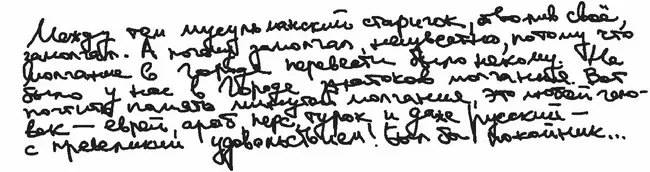 Между тем мусульманский старичок, отволив своё,
замолчал. А почему замолчал, неизвестно, потому что
молчание в Городе перевести было некому. Не
было у нас в Городе знатоков молчания. Вот
почтить память минутой молчания, это любой чело-
век – еврей, араб, перс, турок и даже русский –
с превеликим удовольствием! Был бы покойник...